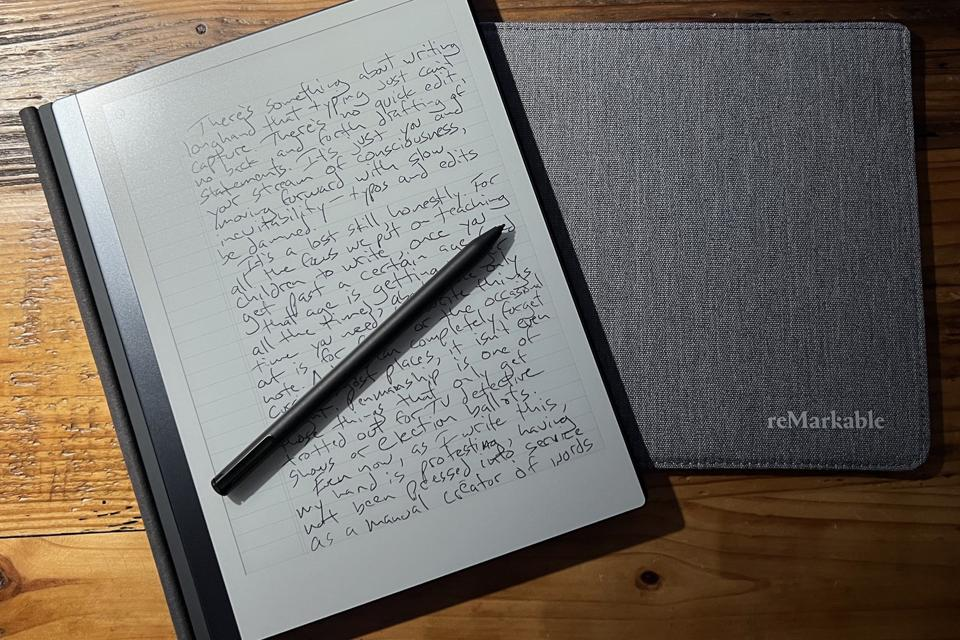 There's something about writing
longhand that typing just can't
capture. There's no quick edit,
no back and forth drafting of
statements. It's just you and
your stream of consciousness,
moving forward with slow,
inevitability — typos and edits
be damned.
It's a lost still, honestly. For
all the focus we put on teaching
children to write, once you
get past a certain age
that age is getting
all the time), only
time you need write things
out is for or the occasional
note. can completely forget
places, it isn't even
Penmanship is one of
those things that only get
trotted out for TV detective
shows or election ballots.
Even now, as I write this,
my hand is protesting, having
not been pressed into service
as a manual creator of words
reMarkable